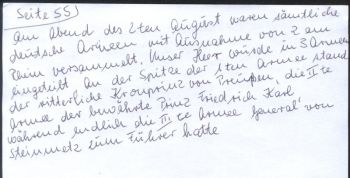 Seite 55)
Am Abend des 2ten August waren sämtliche
deutsche Armeen mit Ausnahme von 2 am
Rhein versammelt. Unser Heer wurde in 3 Armeen
eingeteilt. An der Spitze der 1ten Armee stand
der ritterliche Kronprinz von Preußen, die IIte
Armee der bewährte Prinz Friedrich Karl
während endlich die IIIte Armee General von
Steinmetz zum Führer hatte